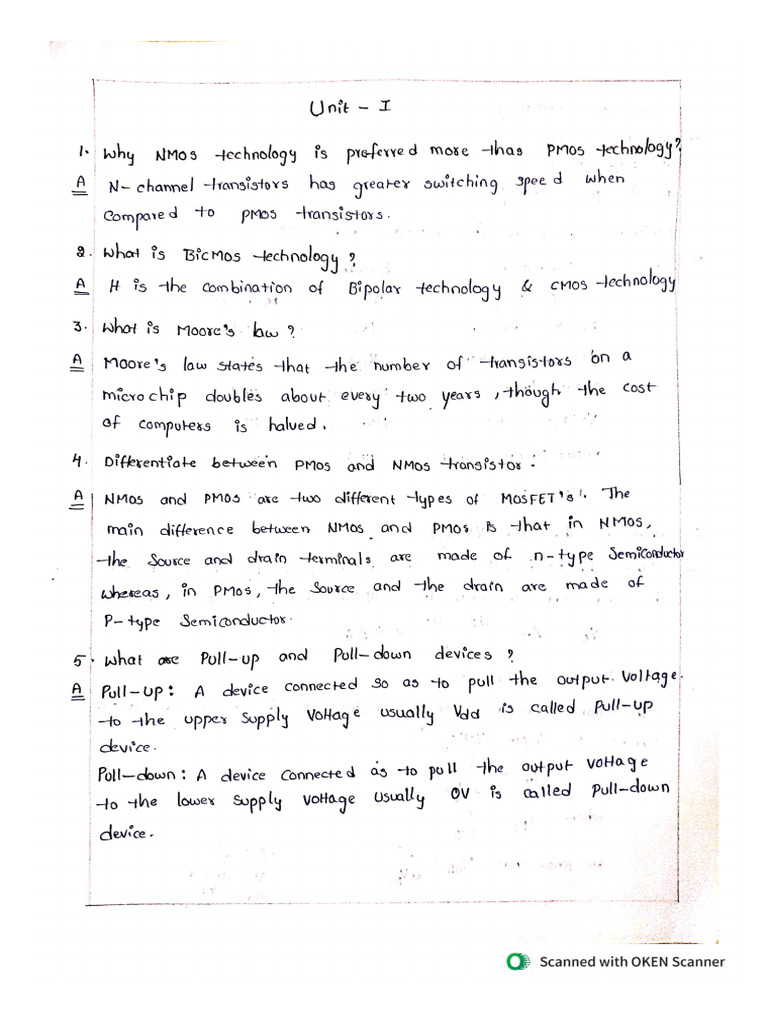 Unit - I
1. Why NMOS technology is preferred more than PMOS technology?
A N-channel transistors has greater switching speed when
compared to PMOS transistors.
2. What is BiCMOS technology?
A It is the combination of Bipolar technology & CMOS technology
3. What is Moore's law?
A Moore's law states that the number of transistors on a
microchip doubles about every two years, though the cost
of computers is halved.
4. Differentiate between PMOS and NMOS transistor.
A NMOS and PMOS are two different types of MOSFET's. The
main difference between NMOS and PMOS is that in NMOS,
the Source and drain terminals are made of n-type Semiconductor
whereas, in PMOS, the Source and the drain are made of
P-type Semiconductor.
5. What are Pull-up and Pull-down devices?
A Pull-up: A device connected so as to pull the output voltage
to the upper supply voltage usually Vdd is called Pull-up
device.
Pull-down: A device connected as to pull the output voltage
to the lower supply voltage usually 0V is called Pull-down
device.
Scanned with OKEN Scanner